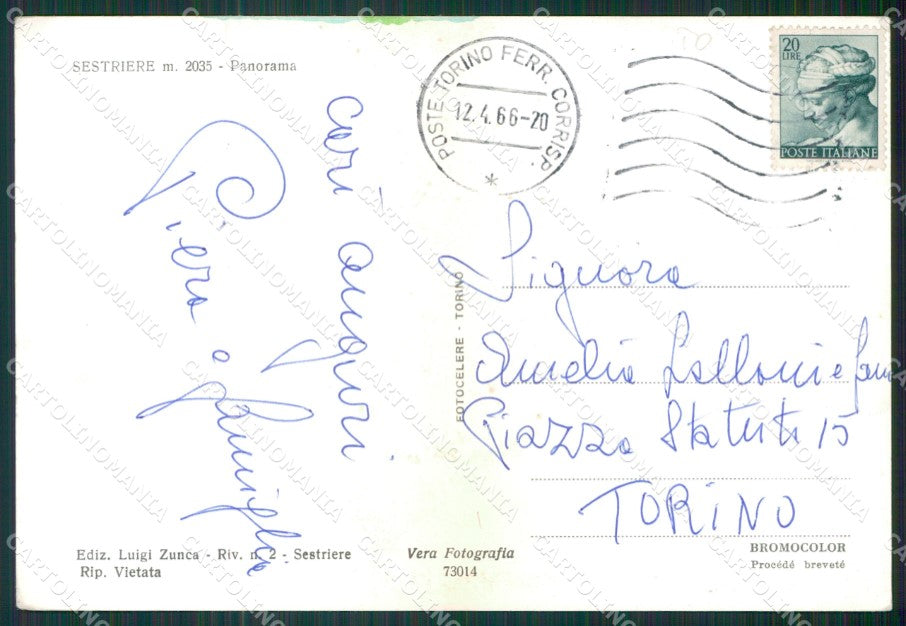 SESTRIERE m. 2035 - Panorama
cari auguri
Piero e famiglia
POSTE TORINO FERR. CORRISP.
12.4.66-20
20
LIRE
POSTE ITALIANE
Signora
Amelia Lalloni e fam
Piazza Statuto 15
TORINO
FOTOCELERE - TORINO
Ediz. Luigi Zunca - Riv. n. 2 - Sestriere
Rip. Vietata
Vera Fotografia
73014
BROMOCOLOR
Procédé breveté
CARTOLINOMANIA